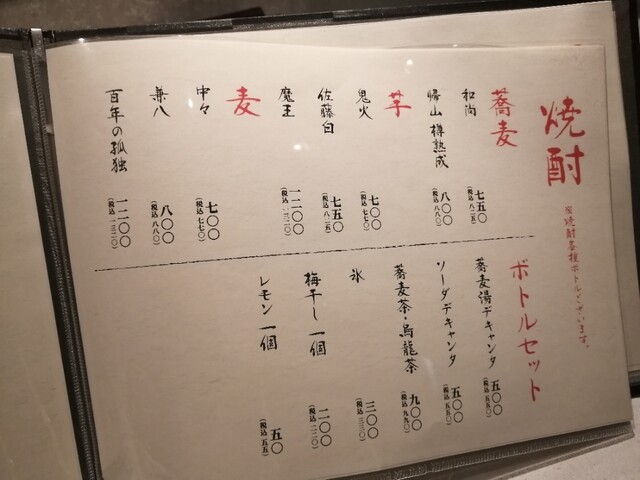 焼酎
蕎麦
和尚 七五〇
(税込 八二五)
帰山 樽熟成 八〇〇
(税込 八八〇)
芋
鬼火 七〇〇
(税込 七七〇)
佐藤白 七五〇
(税込 八二五)
魔王 一二〇〇
(税込 一三二〇)
麦
中々 七〇〇
(税込 七七〇)
兼八 八〇〇
(税込 八八〇)
百年の孤独 一二〇〇
(税込 一三二〇)
焼酎各種ボトルございます。
ボトルセット
蕎麦湯デキャンタ 五〇〇
(税込 五五〇)
ソーダデキャンタ 五〇〇
(税込 五五〇)
蕎麦茶・烏龍茶 九〇〇
(税込 九九〇)
氷 三〇〇
(税込 三三〇)
梅干し 一個 二〇〇
(税込 二二〇)
レモン 一個 五〇
(税込 五五)